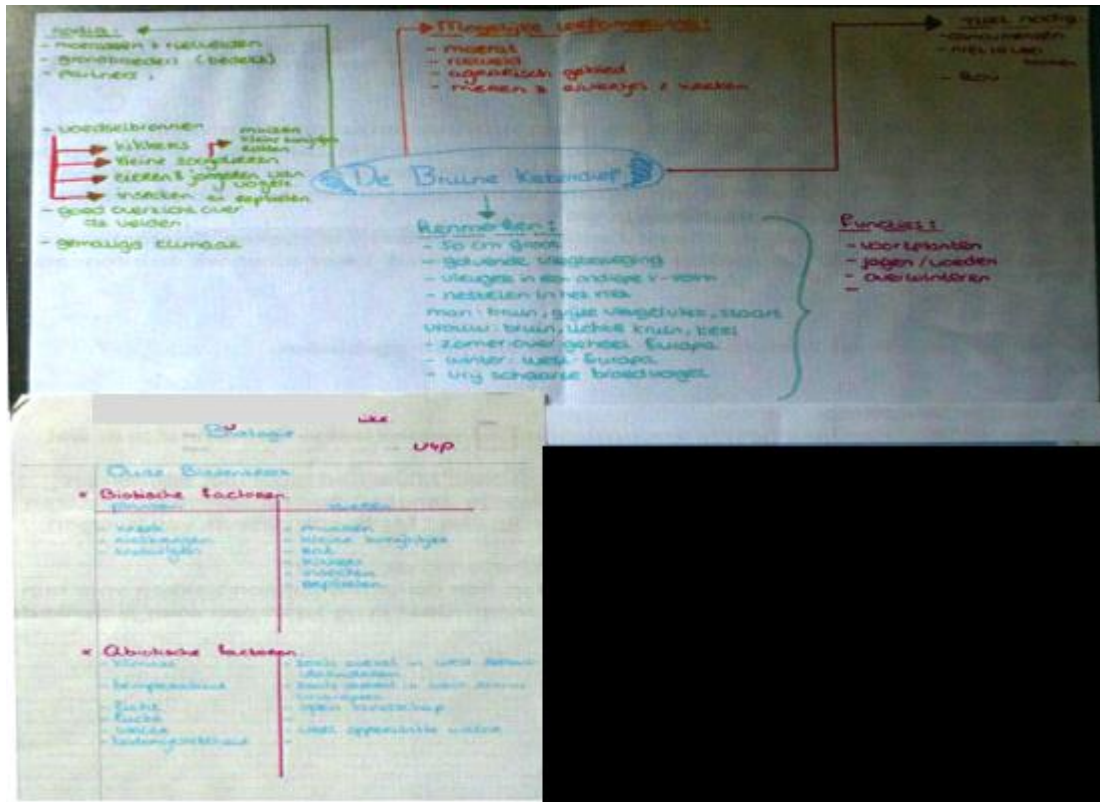 nodig:
- moerassen & rietvelden
- grondbroeden (bedekt)
- partners
- voedselbronnen
kikkers
kleine zoogdieren
muizen
kleine konijntjes
eieren & jongeren van vogels
insecten en reptielen
- goed overzicht over
de velden
- gematigd klimaat
Mogelijke leefomgevingen:
- moeras
- rietveld
- agrarisch gebied
- meren & riviertjes & kreken
niet nodig:
- bomen
De Bruine Kiekendief
Kenmerken:
- 50 cm groot
- golvende vliegbeweging
- vleugels in een ondiepe V-vorm
- nestelen in het riet
man: bruin, grijze vleugelvlek, staart
vrouw: bruin, lichte kruin, keel
- zomer: over geheel Europa
- winter: west-Europa
- vrij schaarse broedvogel
Functies:
- voortplanten
- jagen/voeden
- overwinteren
-
Biologie
U4P
* Biotische factoren
planten
dieren
- rietkragen
- muizen
- kleine konijntjes
- rat
- kikker
- insecten
- reptielen
* Abiotische factoren
- klimaat
- zoals overal in west
- temperatuur
- zoals overal in west
- licht
- open landschap
- lucht
-
- water
- veel oppervlakte water
- bodemgesteldheid
-